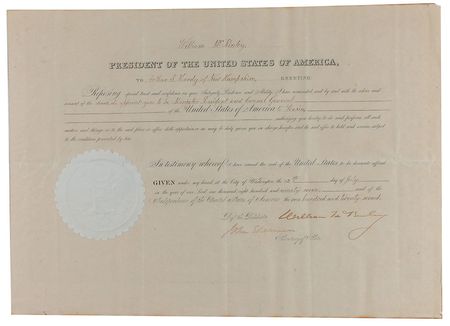 William McKinley
PRESIDENT OF THE UNITED STATES OF AMERICA,
TO Arthur S. Hardy of New Hampshire GREETING
Reposing special trust and confidence in your Integrity, Prudence and Ability, I have nominated and by and with the advice and
consent of the Senate do appoint you to be Minister Resident and Consul General
of the United States of America to Persia
authorizing you hereby to do and perform all such
matters and things as to the said place or office doth appertain or as may be duly given you in charge hereafter and the said office to hold and exercise subject
to the conditions prescribed by law.
In testimony whereof I have caused the seal of the United States to be hereunto affixed.
GIVEN under my hand at the City of Washington the day of July
in the year of our Lord one thousand eight hundred and ninety seven and of the
Independence of the United States of America the one hundred and twenty second.
By the President William McKinley
John Sherman
Secretary of State.